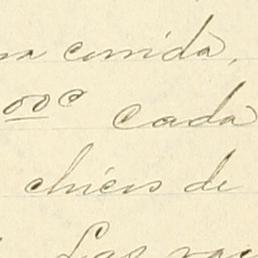 comida,
00c cada
chicos de
Las